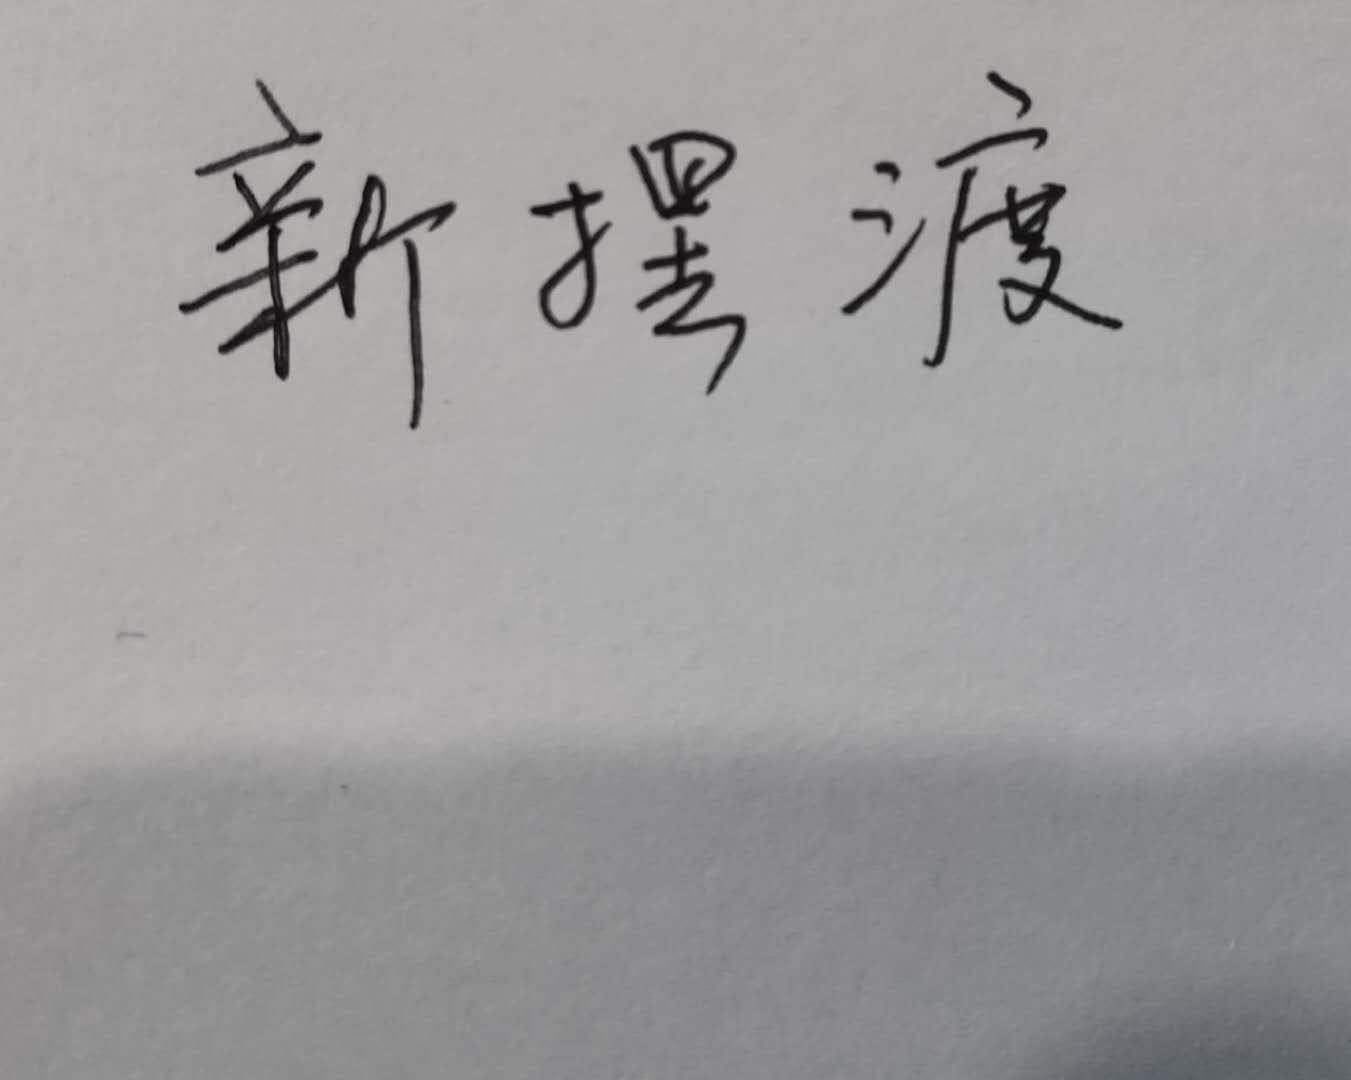 新摆渡